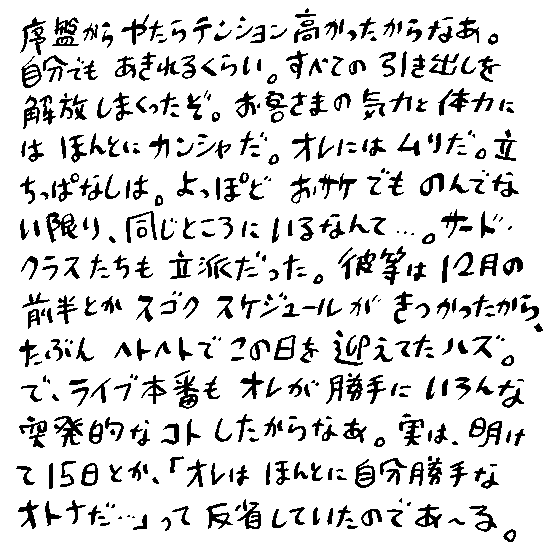 序盤からやたらテンション高かったからなあ。
自分でもあきれるくらい。すべての引き出しを
解放しまくったぞ。お客さまの気力と体力に
はほんとにカンシャだ。オレにはムリだ。立
ちっぱなしは。よっぽどおサケでものんでな
い限り、同じところにいるなんて…。サード・
クラスたちも立派だった。彼等は12月の
前半とかスゴクスケジュールがきつかったから、
たぶんヘトヘトでこの日を迎えてたハズ。
で、ライブ本番もオレが勝手にいろんな
突発的なコトしたからなあ。実は、明け
て15日とか、「オレはほんとに自分勝手な
オトナだ…」って反省していたのであ〜る。